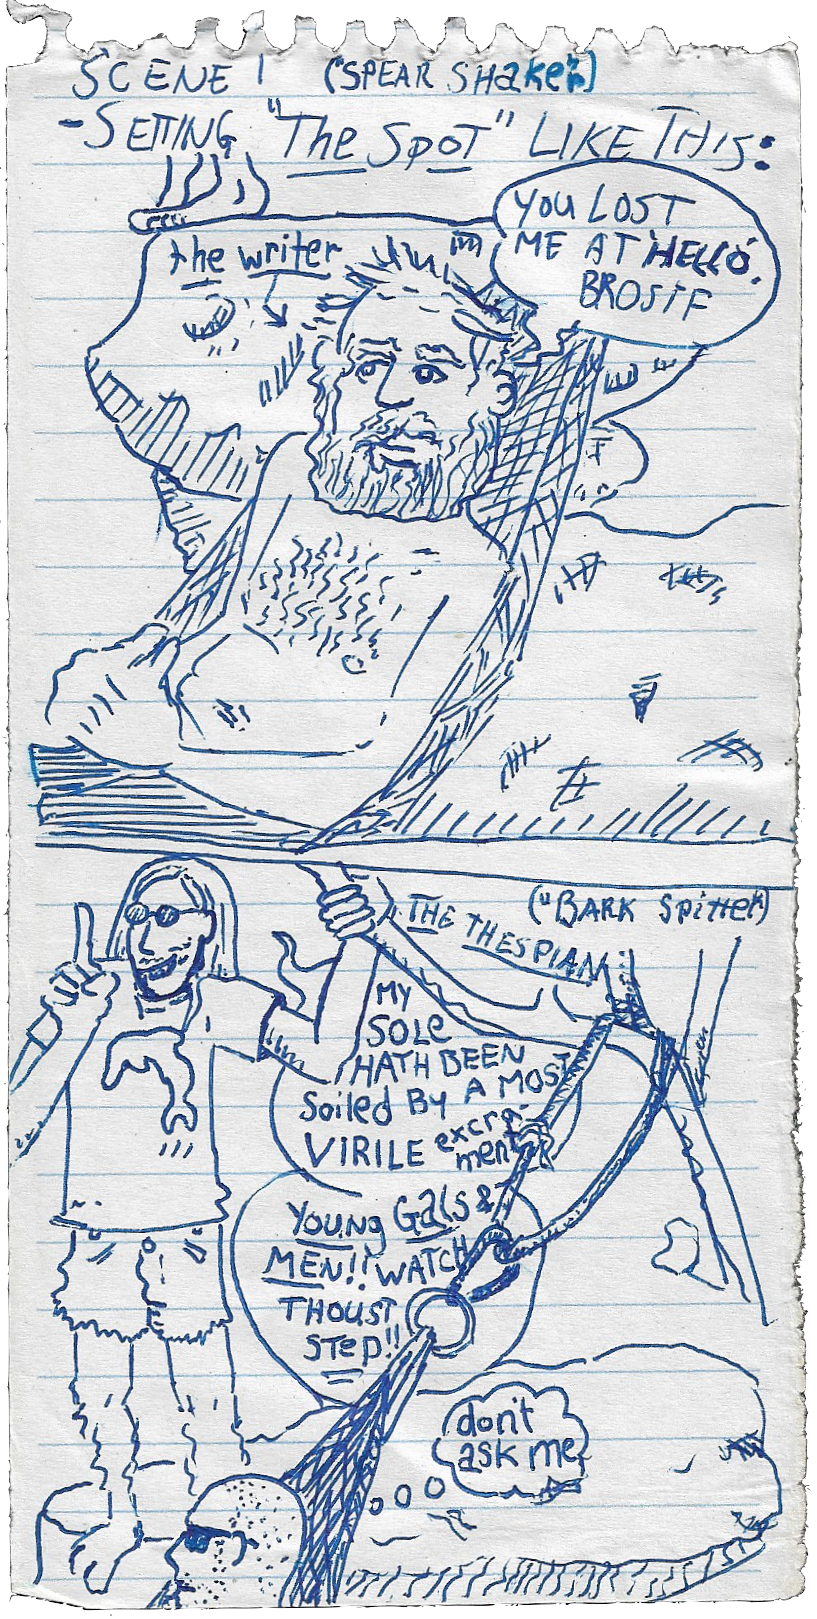 SCENE 1 ("SPEAR SHaken")
-SETTING "The SPOT" LIKE THIS:
YOU LOST
ME AT 'HELLO',
BROSIF
the writer
THE THESPIAN
("BARK Spitter")
MY
SOLe
HATH BEEN
Soiled By A MOST
VIRILE excra-
ment
YOUNg Gals &
MEN!! WATCH
THOUST
STep!!
don't
ask me